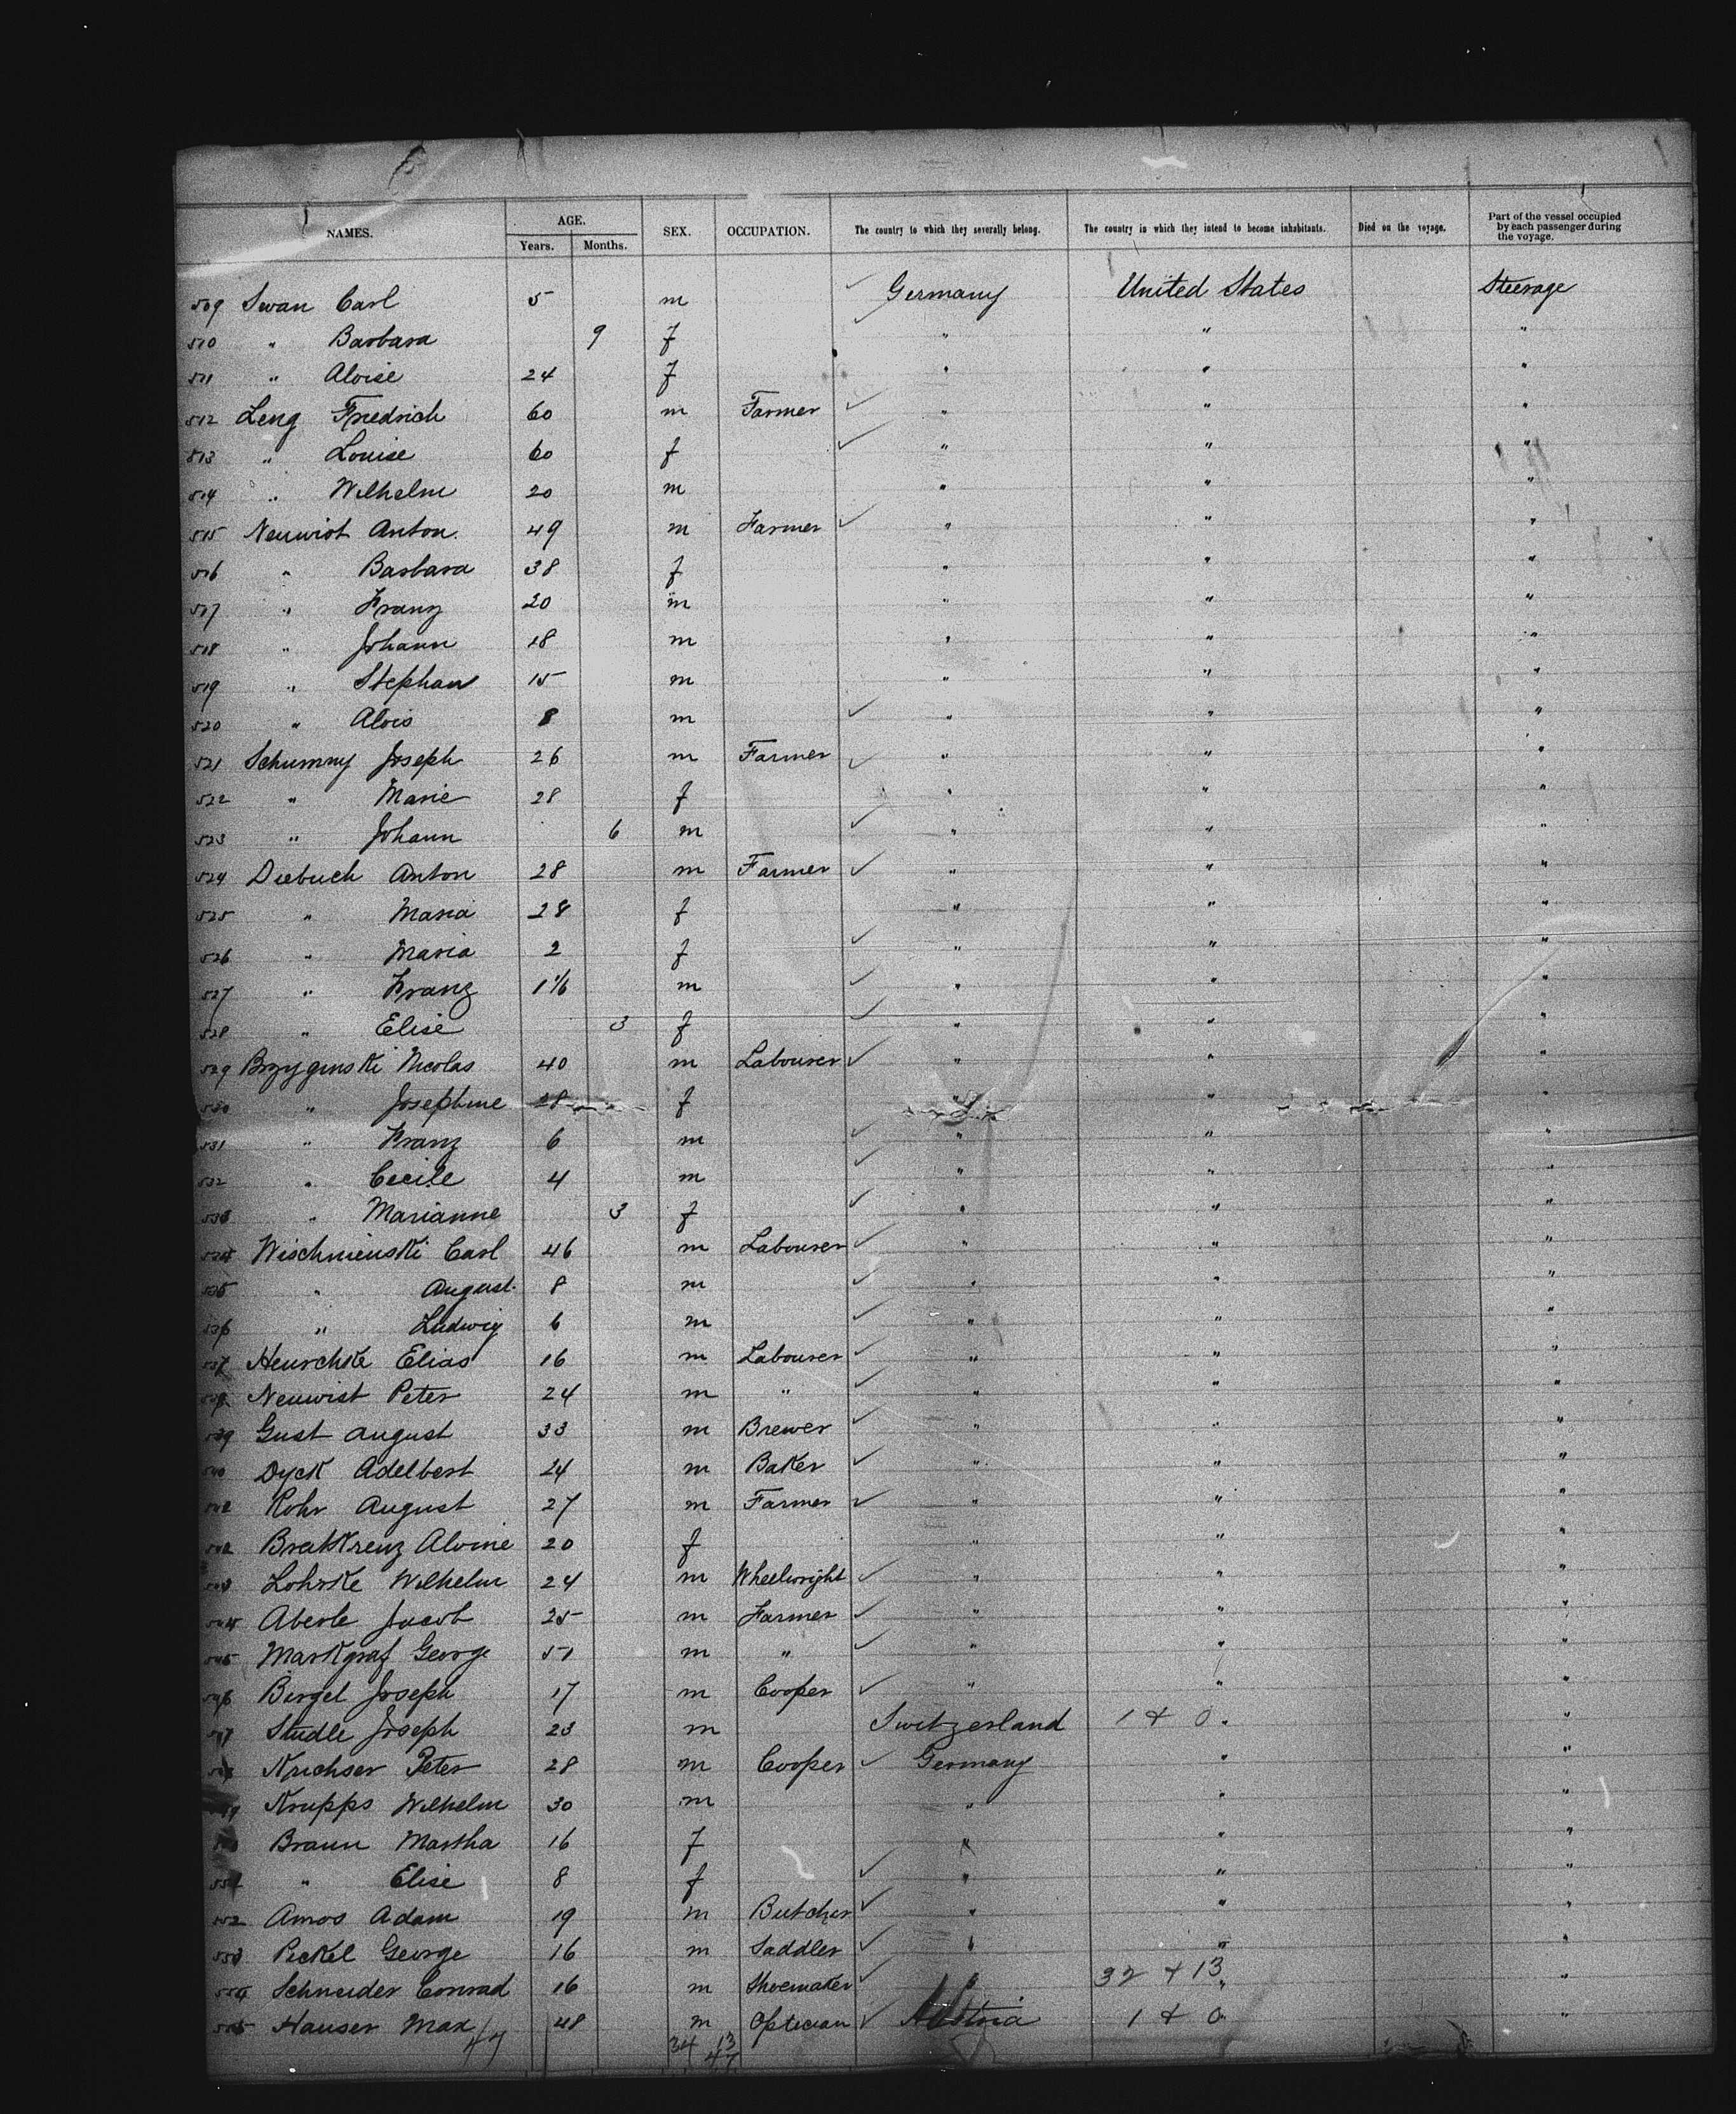 NAMES. AGE. SEX. OCCUPATION. The country to which they severally belong. The country in which they intend to become inhabitants. Died on the voyage. Part of the vessel occupied by each passenger during the voyage.
Years. Months.
509 Swan Carl 5 m Germany United States Steerage
510 " Barbara 9 f " " "
511 " Aloise 24 f " " "
512 Leng Friedrich 60 m Farmer " " "
513 " Louise 60 f " " "
514 " Wilhelm 20 m " " "
515 Neuwirt Anton 49 m Farmer " " "
516 " Barbara 38 f " " "
517 " Franz 20 m " " "
518 " Johann 18 m " " "
519 " Stephan 15 m " " "
520 " Alois 8 m " " "
521 Schummy Joseph 26 m Farmer " " "
522 " Marie 28 f " " "
523 " Johann 6 m " " "
524 Diebuch Anton 28 m Farmer " " "
525 " Maria 28 f " " "
526 " Maria 2 f " " "
527 " Franz 1 1/6 m " " "
528 " Elise 3 f " " "
529 Brzyginski Nicolas 40 m Labourer " " "
530 " Josephine 28 f " " "
531 " Franz 6 m " " "
532 " Cecile 4 m " " "
533 " Marianne 3 f " " "
534 Wischnienski Carl 46 m Labourer " " "
535 " August 8 m " " "
536 " Ludwig 6 m " " "
537 Henschke Elias 16 m Labourer " " "
538 Neuwirt Peter 24 m " " " "
539 Gust August 33 m Brewer " " "
540 Dyck Adelbert 24 m Baker " " "
Rohr August 27 m Farmer " " "
542 Bratkrenz Alvine 20 f " " "
543 Lohrke Wilhelm 24 m Wheelwright " " "
544 Aberle Jacob 25 m Farmer " " "
545 Markgraf George 51 m " " " "
546 Birgel Joseph 17 m Cooper " " "
547 Studle Joseph 23 m Switzerland 1 + 0 " "
Krichser Peter 28 m Cooper Germany " "
Krupps Wilhelm 30 m " " "
Braun Martha 16 f " " "
551 " Elise 8 f " " "
552 Amos Adam 19 m Butcher " " "
553 Peckel George 16 m Saddler " " "
554 Schneider Conrad 16 m Shoemaker " 32 + 13 " "
555 Hauser Max 48 m Optician Austria 1 + 0 " "
47 34 13
47